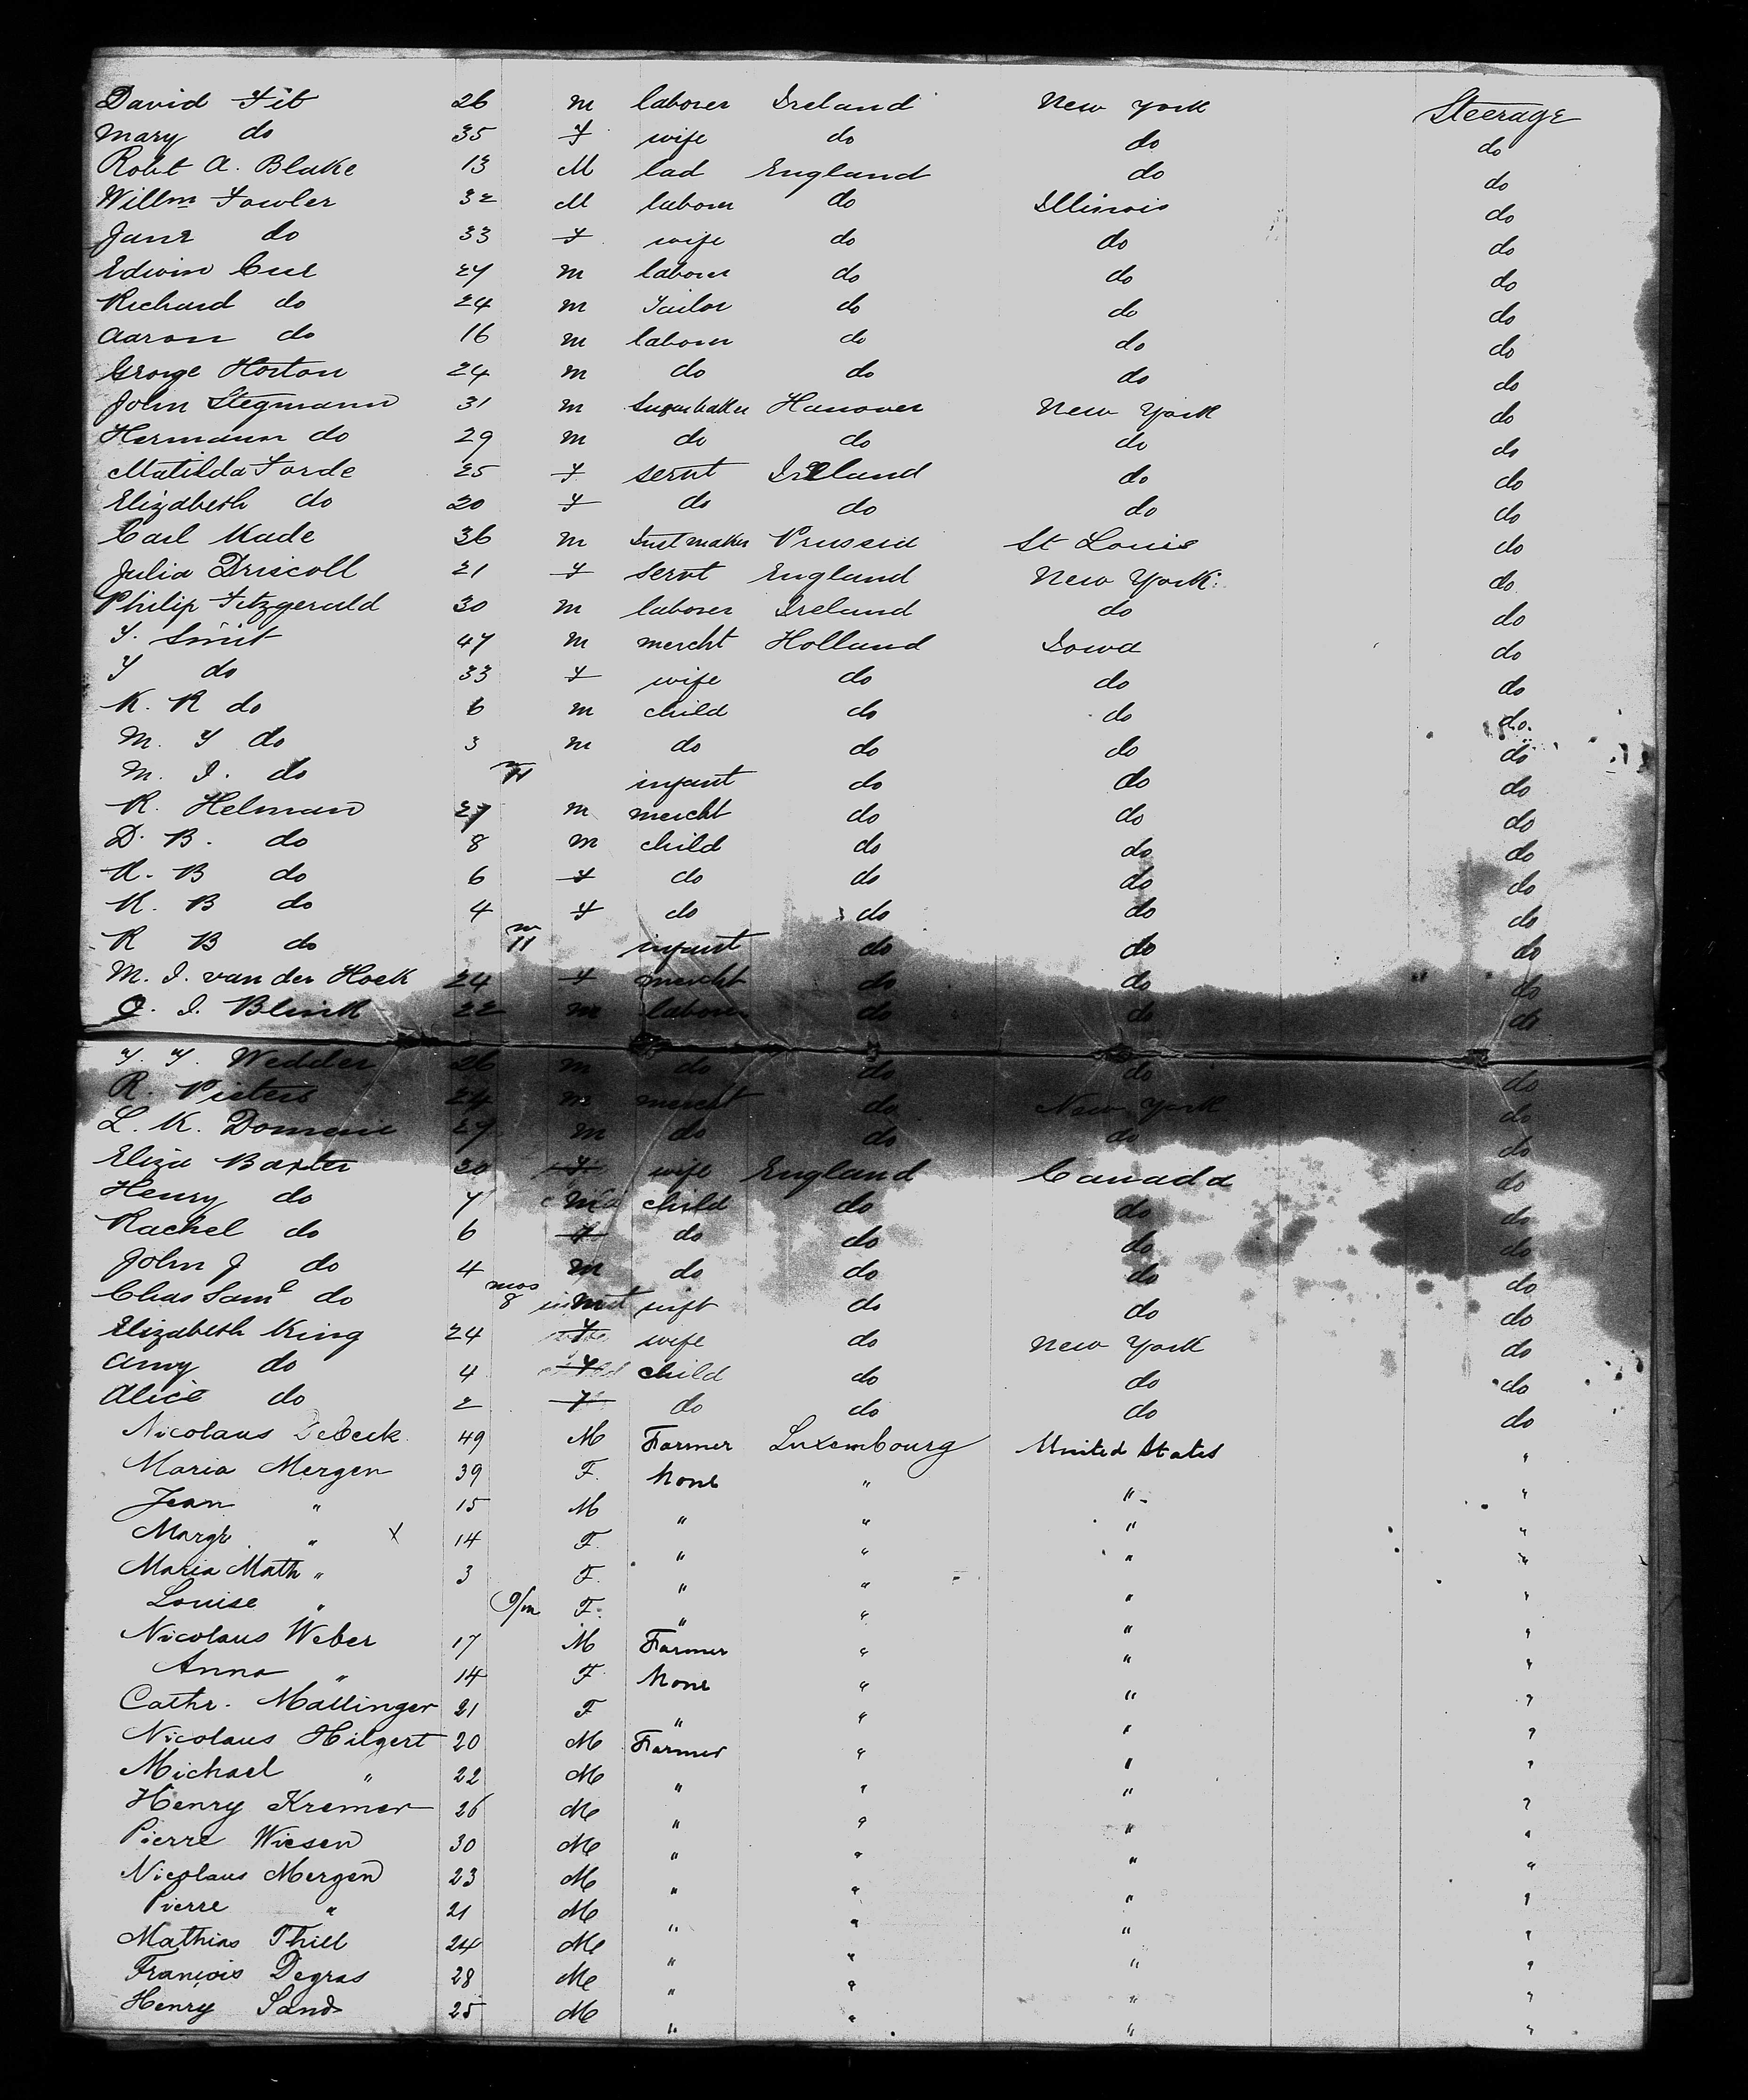 David Fit 26 m laborer Ireland New York Steerage
Mary do 35 f wife do do do
Robt A. Blake 13 M lad England do do
Willm Fowler 32 M laborer do Illinois do
Jane do 33 f wife do do do
Edwin 27 m laborer do do do
Richard do 24 m Tailor do do do
Aaron do 16 m laborer do do do
George Horton 24 m do do do do
John Stegmann 31 m Sugarbaker Hanover New York do
Hermann do 29 m do do do do
Matilda Forde 25 f servt Ireland do do
Elizabeth do 20 f do do do do
Carl Kade 36 m Instmaker Prussia St Louis do
Julia Driscoll 21 f servt England New York do
Philip Fitzgerald 30 m laborer Ireland do do
Y. Smit 47 m mercht Holland Iowa do
Y do 33 f wife do do do
K. R do 6 m child do do do
M. Y do 3 m do do do do
M. I. do m 11 infant do do do
R. Helman 27 m mercht do do do
D. B. do 8 m child do do do
K. B do 6 f do do do do
K. B do 4 f do do do do
R B do m 11 infant do do do
M. I. van der Hoek 24 f mercht do do do
I. Blink 22 m laborer do do do
Y. Y. Wedder 26 m do do do do
R. Pieters 24 m mercht do New York do
L. K. 29 m do do do do
Eliza Baxter 30 f wife England Canada do
Henry do 7 m child do do do
Rachel do 6 f do do do do
John J do 4 m do do do do
Chas Saml do mos 8 m inft do do do
Elizabeth King 24 f wife do New York do
Amy do 4 f child do do do
Alice do 2 f do do do do
Nicolaus 49 M Farmer Luxembourg United States "
Maria Mergen 39 F. None " " "
Jean " 15 M " " " "
Margr. " x 14 F. " " " "
Maria Math " 3 F. " " " "
Louise " 9/m F. " " " "
Nicolaus Weber 17 M Farmer " " "
Anna " 14 F None " " "
Cathr. Mallinger 21 F " " " "
Nicolaus Hilgert 20 M Farmer " " "
Michael " 22 M " " " "
Henry Kremer 26 M " " " "
Pierre Wiesen 30 M " " " "
Nicolaus Mergen 23 M " " " "
Pierre " 21 M " " " "
Mathias Thill 24 M " " " "
François Degras 28 M " " " "
Henry Sand 25 M " " " "